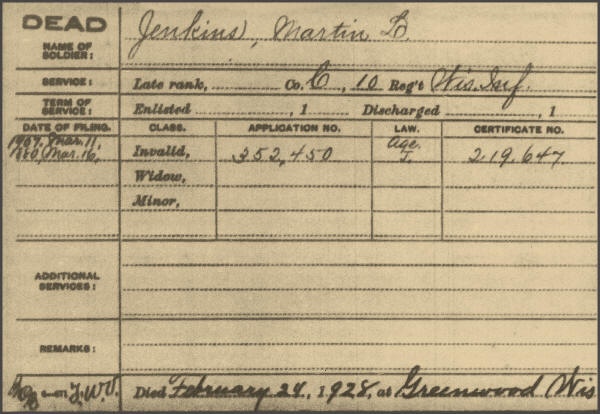 DEAD
NAME OF SOLDIER: Jenkins, Martin B.
SERVICE: Late rank, Co. C, 10 Reg't Wis. Inf.
TERM OF SERVICE: Enlisted , 1 Discharged , 1
DATE OF FILING. CLASS. APPLICATION NO. LAW. CERTIFICATE NO.
1907, Mar. 11, Age
1880, Mar. 16, Invalid, 352,450 J. 219,647
Widow,
Minor,
ADDITIONAL SERVICES:
REMARKS:
J.W.V. Died February 24, 1928, at Greenwood Wis